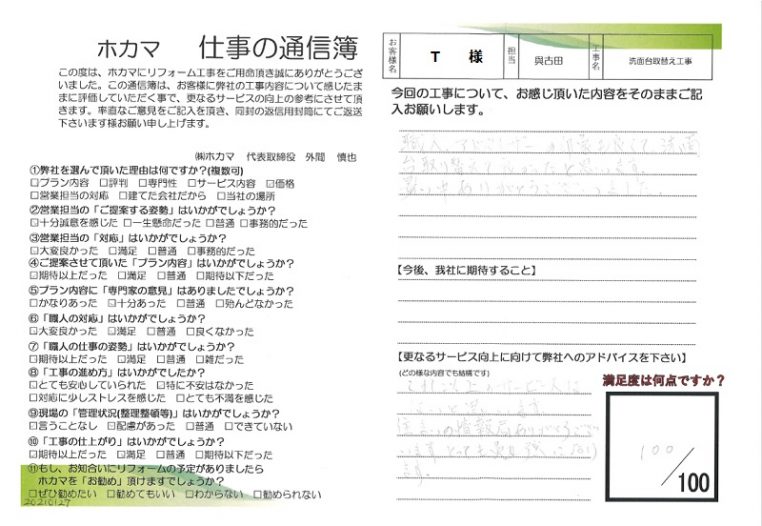 ホカマ 仕事の通信簿
この度は、ホカマにリフォーム工事をご用命頂き誠にありがとうござ
いました。この通信簿は、お客様に弊社の工事内容について感じたま
まに評価していただく事で、更なるサービスの向上の参考にさせて頂
きます。率直なご意見をご記入を頂き、同封の返信用封筒にてご返送
下さいます様お願い申し上げます。
㈱ホカマ 代表取締役 外間 慎也
①弊社を選んで頂いた理由は何ですか?(複数可)
□プラン内容 □評判 □専門性 □サービス内容 ☑価格
□営業担当の対応 □建てた会社だから □当社の場所
②営業担当の「ご提案する姿勢」はいかがでしょうか?
☑十分誠意を感じた □一生懸命だった □普通 □事務的だった
③営業担当の「対応」はいかがでしょうか?
☑大変良かった □満足 □普通 □事務的だった
④ご提案させて頂いた「プラン内容」はいかがでしょうか?
☑期待以上だった □満足 □普通 □期待以下だった
⑤プラン内容に「専門家の意見」はありましたでしょうか?
□かなりあった ☑十分あった □普通 □殆んどなかった
⑥「職人の対応」はいかがでしょうか?
☑大変良かった □満足 □普通 □良くなかった
⑦「職人の仕事の姿勢」はいかがでしょうか?
☑期待以上だった □満足 □普通 □雑だった
⑧「工事の進め方」はいかがでしたか?
□とても安心していられた □特に不安はなかった
□対応に少しストレスを感じた □とても不満を感じた
⑨現場の「管理状況(整理整頓等)」はいかがでしょうか?
□言うことなし ☑配慮があった □普通 □できていない
⑩「工事の仕上がり」はいかがでしょうか?
☑期待以上だった □満足 □普通 □期待以下だった
⑪もし、お知合いにリフォームの予定がありましたら
ホカマを「お勧め」頂けますでしょうか?
☑ぜひ勧めたい □勧めてもいい □わからない □勧められない
20210127
お客様名 T 様 担当 與古田 工事名 洗面台取替え工事
今回の工事について、お感じ頂いた内容をそのままご記
入お願いします。
台取り替えて良かったと思います。
ありがとうございました。
【今後、我社に期待すること】
【更なるサービス向上に向けて弊社へのアドバイスを下さい】
(どの様な内容でも結構です)
満足度は何点ですか?
これ以上のサービスは
ないと思います。
100/100